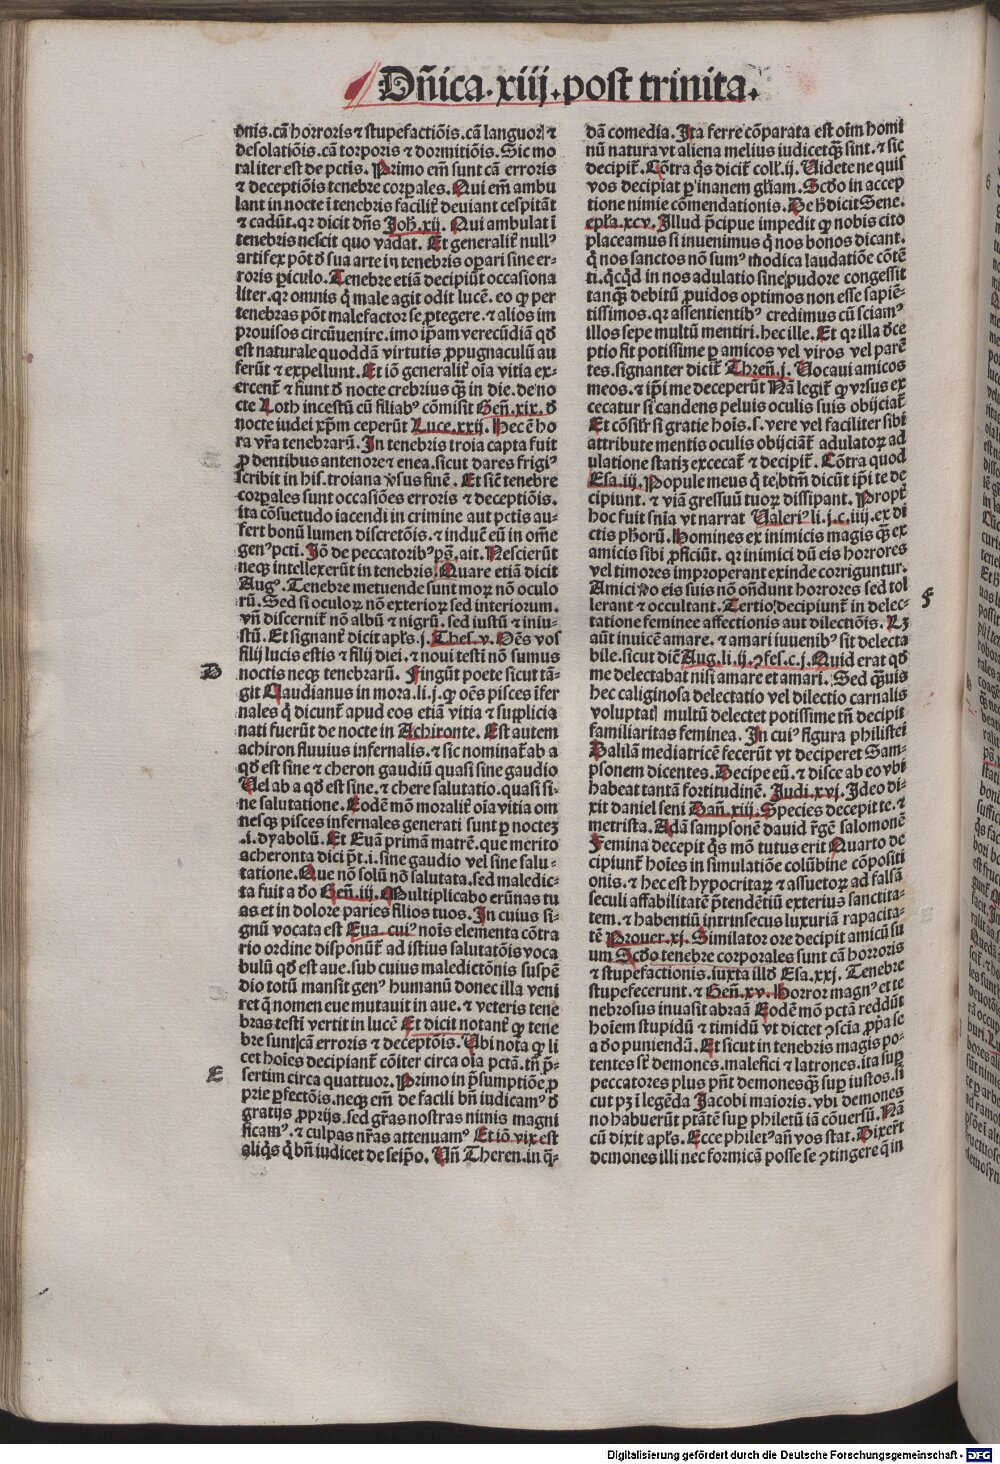 Dñica.xiij.post trinita.
onis.cã horroris ⁊ stupefactiõis.cã languoꝝ ⁊
desolatiõis.cã torporis ⁊ dormitiõis. Sic mo
raliter est de pctīs. Primo em̄ sunt cã erroris
⁊ deceptiõis tenebre corꝑales. Qui em̄ ambu
lant in nocte ī tenebris facilit̄ deuiant cespitãt
⁊ cadūt. qꝛ dicit dn̄s Joh̄.xij. Qui ambulat ī
tenebris nescit quo vadat. Et generalit̄ nullꝰ
artifex põt đ sua arte in tenebris oꝑari sine er-
roris ꝑiculo. Tenebre etiã decipiūt occasiona
liter. qꝛ omnis q̇ male agit odit lucē. eo ꝙ per
tenebras põt malefactor se ꝓtegere. ⁊ alios im
prouisos circūuenire. imo ip̄am verecūdiã qđ
est naturale quoddã virtutis ꝓpugnaculū au
ferūt ⁊ expellunt. Et iõ generalit̄ oīa vitia ex-
ercent̄ ⁊ fiunt đ nocte crebrius qꝫ in die. de no
cte Loth incestū cū filiabꝰ cõmisit Gen̄.xix. đ
nocte iudei xp̄m ceperūt Luce.xxij. Hec ē ho
ra vr̄a tenebrarū. In tenebris troia capta fuit
ꝓdentibus antenore ⁊ enea. sicut dares frigiꝰ
scribit in his. troiana ꝟsus finē. Et sic̄ tenebre
corꝑales sunt occasiões erroris ⁊ deceptiõis.
ita cõsuetudo iacendi in crimine aut pctīs au-
fert bonū lumen discretõis. ⁊ induc̄ eū in om̄e
genꝰ pcti. Jõ de peccatoribꝰ ps̄. ait. Nescierūt
neqꝫ intellexerūt in tenebris. Quare etiã dicit
Augꝰ. Tenebre metuende sunt moꝝ nõ oculo
rū. Sed si oculoꝝ nõ exterioꝝ sed interiorum.
vn̄ discernit̄ nõ albū ⁊ nigrū. sed iustū ⁊ iniu-
stū. Et signant̄ dicit apl̄s. j. Thes. v. Oēs vos
filij lucis estis ⁊ filij diei. ⁊ noui testi nõ sumus
noctis neqꝫ tenebrarū. Fingūt poete sicut tã-
git Claudianus in mora. li. j. ꝙ oēs pisces ĩfer
nales q̇ dicunt̄ apud eos etiã vitia ⁊ supplicia
nati fuerūt de nocte in Achironte. Est autem
achiron fluuius infernalis. ⁊ sic nominat̄ ab a
qđ est sine ⁊ cheron gaudiū quasi sine gaudio
Vel ab a qđ est sine. ⁊ chere salutatio. quasi si-
ne salutatione. Eodē mõ moralit̄ oīa vitia om
nesqꝫ pisces infernales generati sunt ꝑ noctez
.i. dyabolū. Et Euã primã matrē. que merito
acheronta dici põt. i. sine gaudio vel sine salu-
tatione. Que nõ solū nõ salutata. sed maledic-
ta fuit a đo Gen̄. iij. Multiplicabo erūnas tu
as et in dolore paries filios tuos. In cuius si-
gnū vocata est Eua. cuiꝰ nõis elementa cõtra
rio ordine disponūt̄ ad istius salutatõis voca
bulū qđ est aue. sub cuius maledictõnis suspē
dio totū mansit genꝰ humanū donec illa veni
ret q̇ nomen eue mutauit in aue. ⁊ veteris tene
bras testi vertit in lucē Et dicit notant̄ ꝙ tene
bre sunt cã erroris ⁊ deceptõis. Ubi nota ꝙ li
cet hoīes decipiant̄ cõiter circa oīa pctã. tñ p̄-
sertim circa quattuor. Primo in p̄sumptiõe ꝓ
prie ꝑfectõis. neqꝫ em̄ de facili bn̄ iudicamꝰ đ
gratijs ꝓprijs. sed gr̄as nostras nimis magni
ficamꝰ. ⁊ culpas nr̄as attenuamꝰ Et iõ vix est
aliq̇s q̇ bn̄ iudicet de seip̄o. Vn̄ Theren. in q̄-
D
E
dã comedia. Ita ferre cõparata est oīm homi
nū natura vt aliena melius iudicet qꝫ sint. ⁊ sic
decipit̄. Cõtra q̇s dicit̄ coll̄. ij. Videte ne quis
vos decipiat ꝑ inanem gl̄iam. Scđo in accep
tione nimie cõmendationis. De h̄ dicit Sene.
epl̄a.xcv. Illud p̄cipue impedit ꝙ nobis cito
placeamus si inuenimus q̇ nos bonos dicant.
q̇ nos sanctos nõ sumꝰ modica laudatiõe cõtē
ti. q̇cqđ in nos adulatio sine pudore congessit
tanqꝫ debitū ꝓuidos optimos non esse sapiē-
tissimos. qꝛ assentientibꝰ credimus cū sciamꝰ
illos sepe multū mentiri. hec ille. Et qꝛ illa đce
ptio fit potissime ꝑ amicos vel viros vel parē
tes. signanter dicit̄ Thren̄. j. Vocaui amicos
meos. ⁊ ip̄i me deceperūt Nã legit̄ ꝙ vrsus ex
cecatur si candens peluis oculis suis obijciat̄
Et cõsil̄r si gratie hoīs. s. vere vel faciliter sibi
attribute mentis oculis obijciãt̄ adulatoꝝ ad
ulatione statiꝫ excecat̄ ⁊ decipit̄. Cõtra quod
Esa. iij. Popule meus q̇ te btm̄ dicūt ip̄i te de
cipiunt. ⁊ viã gressuū tuoꝝ dissipant. Propt̄
hoc fuit sn̄ia vt narrat Valeriꝰ li. j. c. iiij. ex di
ctis ph̄orū. Homines ex inimicis magis qꝫ ex
amicis sibi ꝓficiūt. qꝛ inimici dū eis horrores
vel timores improperant exinde corriguntur.
Amici ꝟo eis suis nõ on̄dunt horrores sed tol
lerant ⁊ occultant. Tertio decipiunt̄ in delec-
tatione feminee affectionis aut dilectiõis. Lꝫ
aūt inuicē amare. ⁊ amari iuuenibꝰ sit delecta
bile. sicut dic̄ Aug. li. ij. ꝯfes. c. j. Quid erat qđ
me delectabat nisi amare et amari. Sed qꝫuis
hec caliginosa delectatio vel dilectio carnalis
voluptatꝭ multū delectet potissime tñ decipit
familiaritas feminea. In cuiꝰ figura philistei
Dalilã mediatricē fecerūt vt deciperet Sam-
psonem dicentes. Decipe eū. ⁊ disce ab eo vbi
habeat tantã fortitudinē. Judi.xvj. Ideo di-
xit daniel seni Dan̄. xiij. Species decepit te. ⁊
metrista. Adã sampsonē dauid r̄gē salomonē
Femina decepit q̇s mõ tutus erit Quarto de
cipiunt̄ hoīes in simulatiõe colūbine cõpositi
onis. ⁊ hec est hypocritaꝝ ⁊ assuetoꝝ ad falsã
seculi affabilitatē p̄tendētiū exterius sanctita-
tem. ⁊ habentiū intrinsecus luxuriã rapacita-
tē Prouer. xj. Simulator ore decipit amicū su
um Scđo tenebre corporales sunt cã horroris
⁊ stupefactionis. iuxta illđ Esa. xxj. Tenebre
stupefecerunt. ⁊ Gen̄. xv. Horror magnꝰ et te
nebrosus inuasit abraã Eodē mõ pctã reddūt
hoīem stupidū ⁊ timidū vt dictet ꝯscia ꝓp̄a se
a đo puniendã. Et sicut in tenebris magis po-
tentes st̄ demones. malefici ⁊ latrones. ita suꝑ
peccatores plus pn̄t demones qꝫ suꝑ iustos. si
cut pꝫ ī legēda Jacobi maioris. vbi demones
no habuerūt ptãtē suꝑ philetū iã cõuersū. Nã
cū dixit apl̄s. Ecce philetꝰ añ vos stat. Dixer̄t
demones illi nec formicã posse se ꝯtingere q̇ in
F
Digitalisierung gefördert durch die Deutsche Forschungsgemeinschaft - DFG